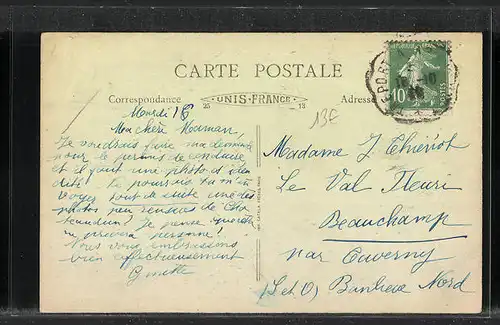 CARTE POSTALE
Correspondance
UNIS-FRANCE
25 13
Adresse
10 c
POSTES
13E
Mardi 16
Ma chère Maman,
Je voudrais faire ma demande
pour le permis de conduire
et il faut une photo d'iden
tité. Te pourrais tu m'en
voyer tout de suite une des
photos peu rendues de
? Je pense qu'on
ne prévera personne!
Nous vous embrassons
bien affectueusement
Ginette
Madame J. Thiériot
Le Val Fleuri
Beauchamp
par Taverny
(S et O) Banlieue Nord